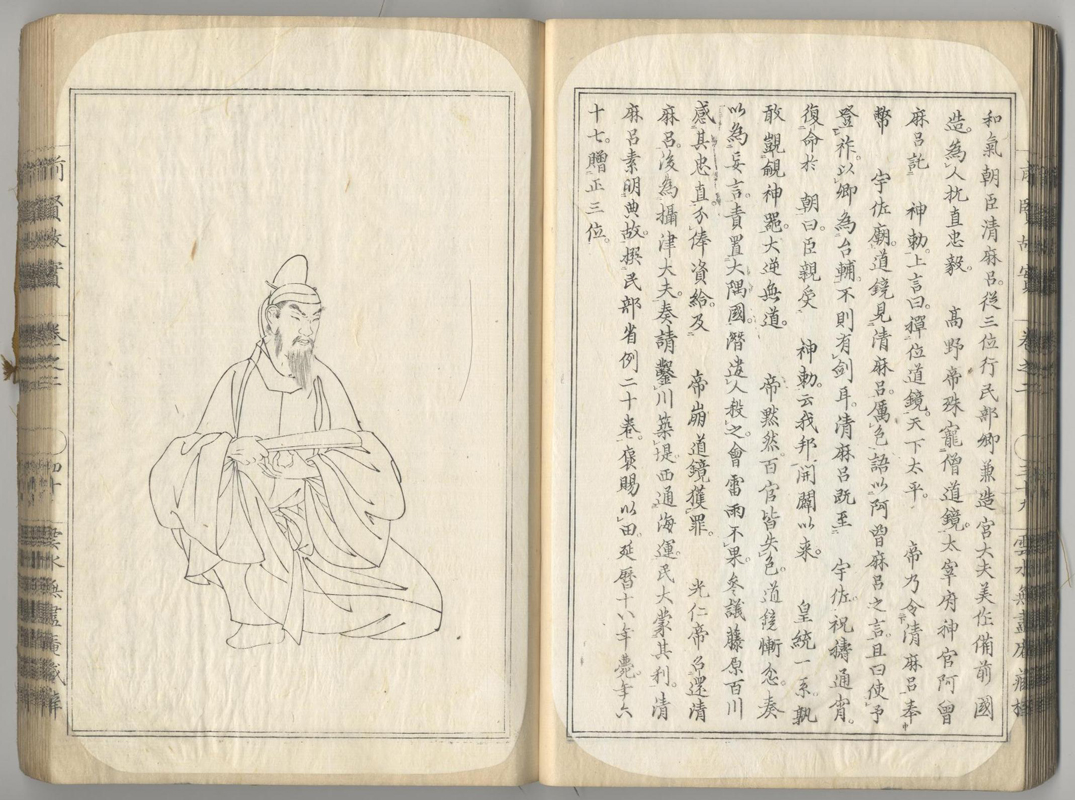 和氣朝臣清麻呂。從三位行民部卿兼造宮大夫美作備前國
造。為人抗直忠毅。 髙野帝殊寵僧道鏡。太宰府神官阿曾
麻呂詑 神勅。上言曰。禪位道鏡。天下太平。 帝乃令清麻呂奉
幣 宇佐廟。道鏡見清麻呂。厲色語以阿曾麻呂之言。且曰使予
登祚。以卿為台輔。不則有剑耳。清麻呂既至 宇佐。祝禱通宵。
復命於 朝。曰。臣親受 神勅。云我邦開闢以来。 皇統一系。孰
敢覬覦神器。大逆無道。 帝黙然。百官皆失色。道鏡慚忿。奏
以為妄言。責置大隅國。潛遣人殺之。會雷雨不果。參議藤原百川
感其忠直。分俸資給。及 帝崩道鏡獲罪。 光仁帝召還清
麻呂。後為攝津大夫。奏請鑿川築堤。西通海運。民大蒙其利。清
麻呂素明典故。撰民部省例二十卷。褒賜以田。延暦十八年薨。年六
十七。贈正三位。
前賢故實 卷之二